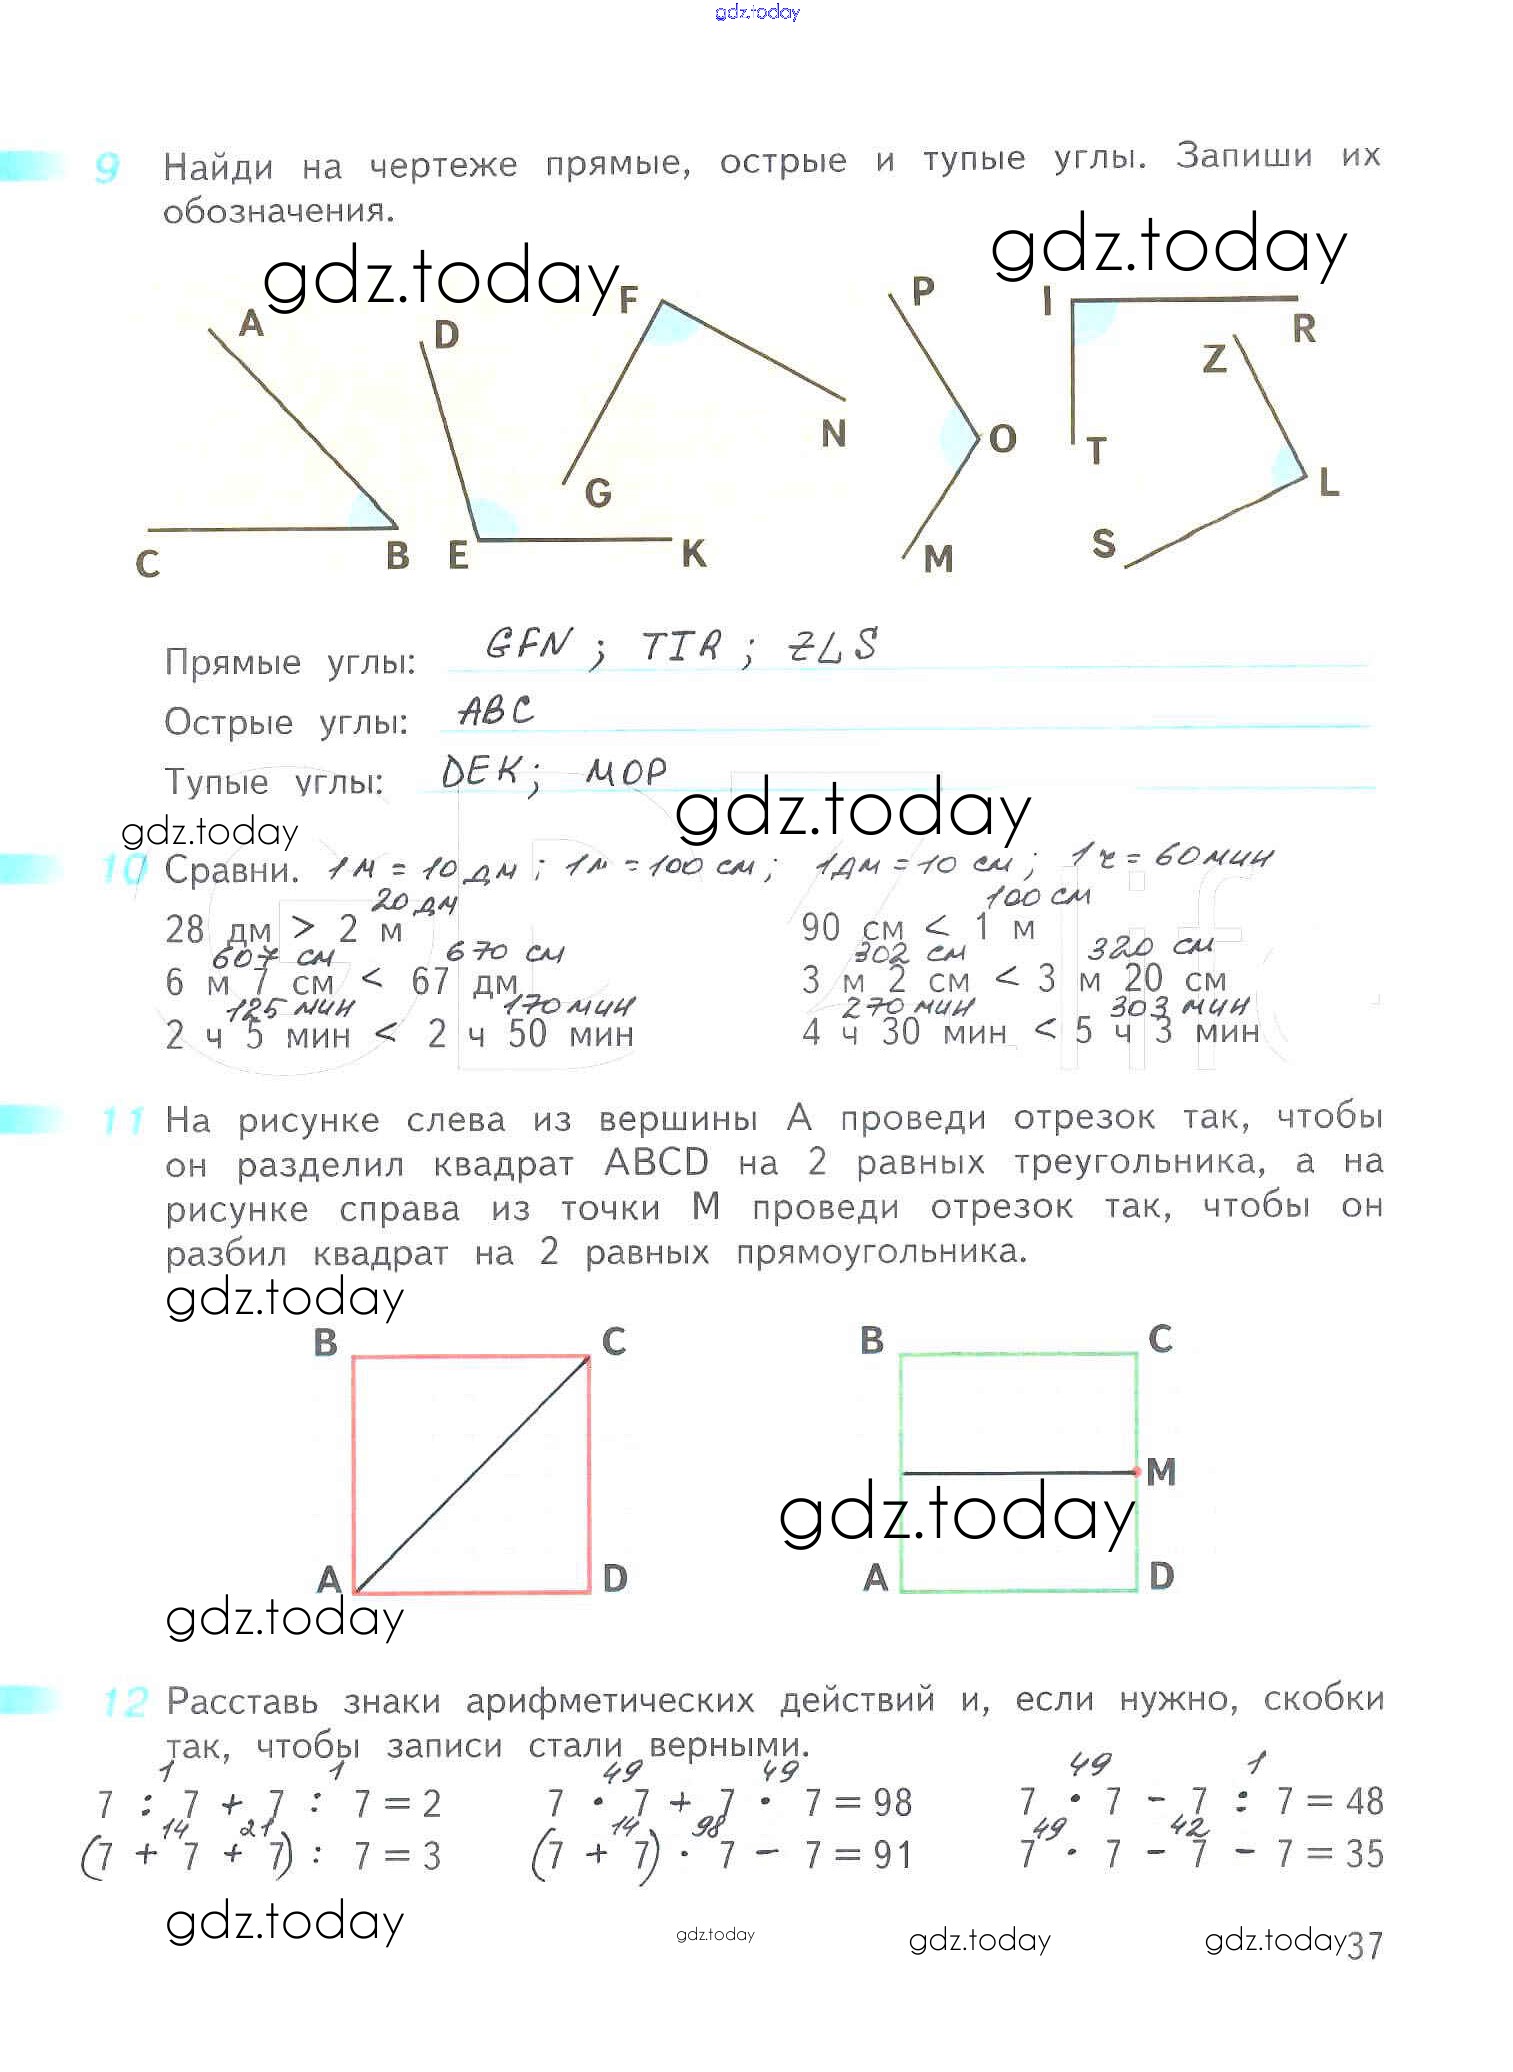 gdz.today
9 Найди на чертеже прямые, острые и тупые углы. Запиши их
обозначения.
gdz.today gdz.today
A D F P I R Z
N O T L
C B E G K M S
Прямые углы: GFN ; TIR ; ZLS
Острые углы: ABC
Тупые углы: DEK; MOP
gdz.today
gdz.today
10 Сравни. 1 м = 10 дм ; 1 м = 100 см ; 1 дм = 10 см ; 1 ч = 60 мин
20 дм 100 см
28 дм > 2 м 90 см < 1 м
607 см 670 см 302 см 320 см
6 м 7 см < 67 дм 3 м 2 см < 3 м 20 см
125 мин 170 мин 270 мин 303 мин
2 ч 5 мин < 2 ч 50 мин 4 ч 30 мин < 5 ч 3 мин
11 На рисунке слева из вершины A проведи отрезок так, чтобы
он разделил квадрат ABCD на 2 равных треугольника, а на
рисунке справа из точки M проведи отрезок так, чтобы он
разбил квадрат на 2 равных прямоугольника.
gdz.today
B C B C
M
gdz.today
A D A D
gdz.today
12 Расставь знаки арифметических действий и, если нужно, скобки
так, чтобы записи стали верными.
1 1 49 49 49 1
7 : 7 + 7 : 7 = 2 7 · 7 + 7 · 7 = 98 7 · 7 - 7 : 7 = 48
14 21 14 98 49 42
(7 + 7 + 7) : 7 = 3 (7 + 7) · 7 - 7 = 91 7 · 7 - 7 - 7 = 35
gdz.today gdz.today gdz.today gdz.today 37